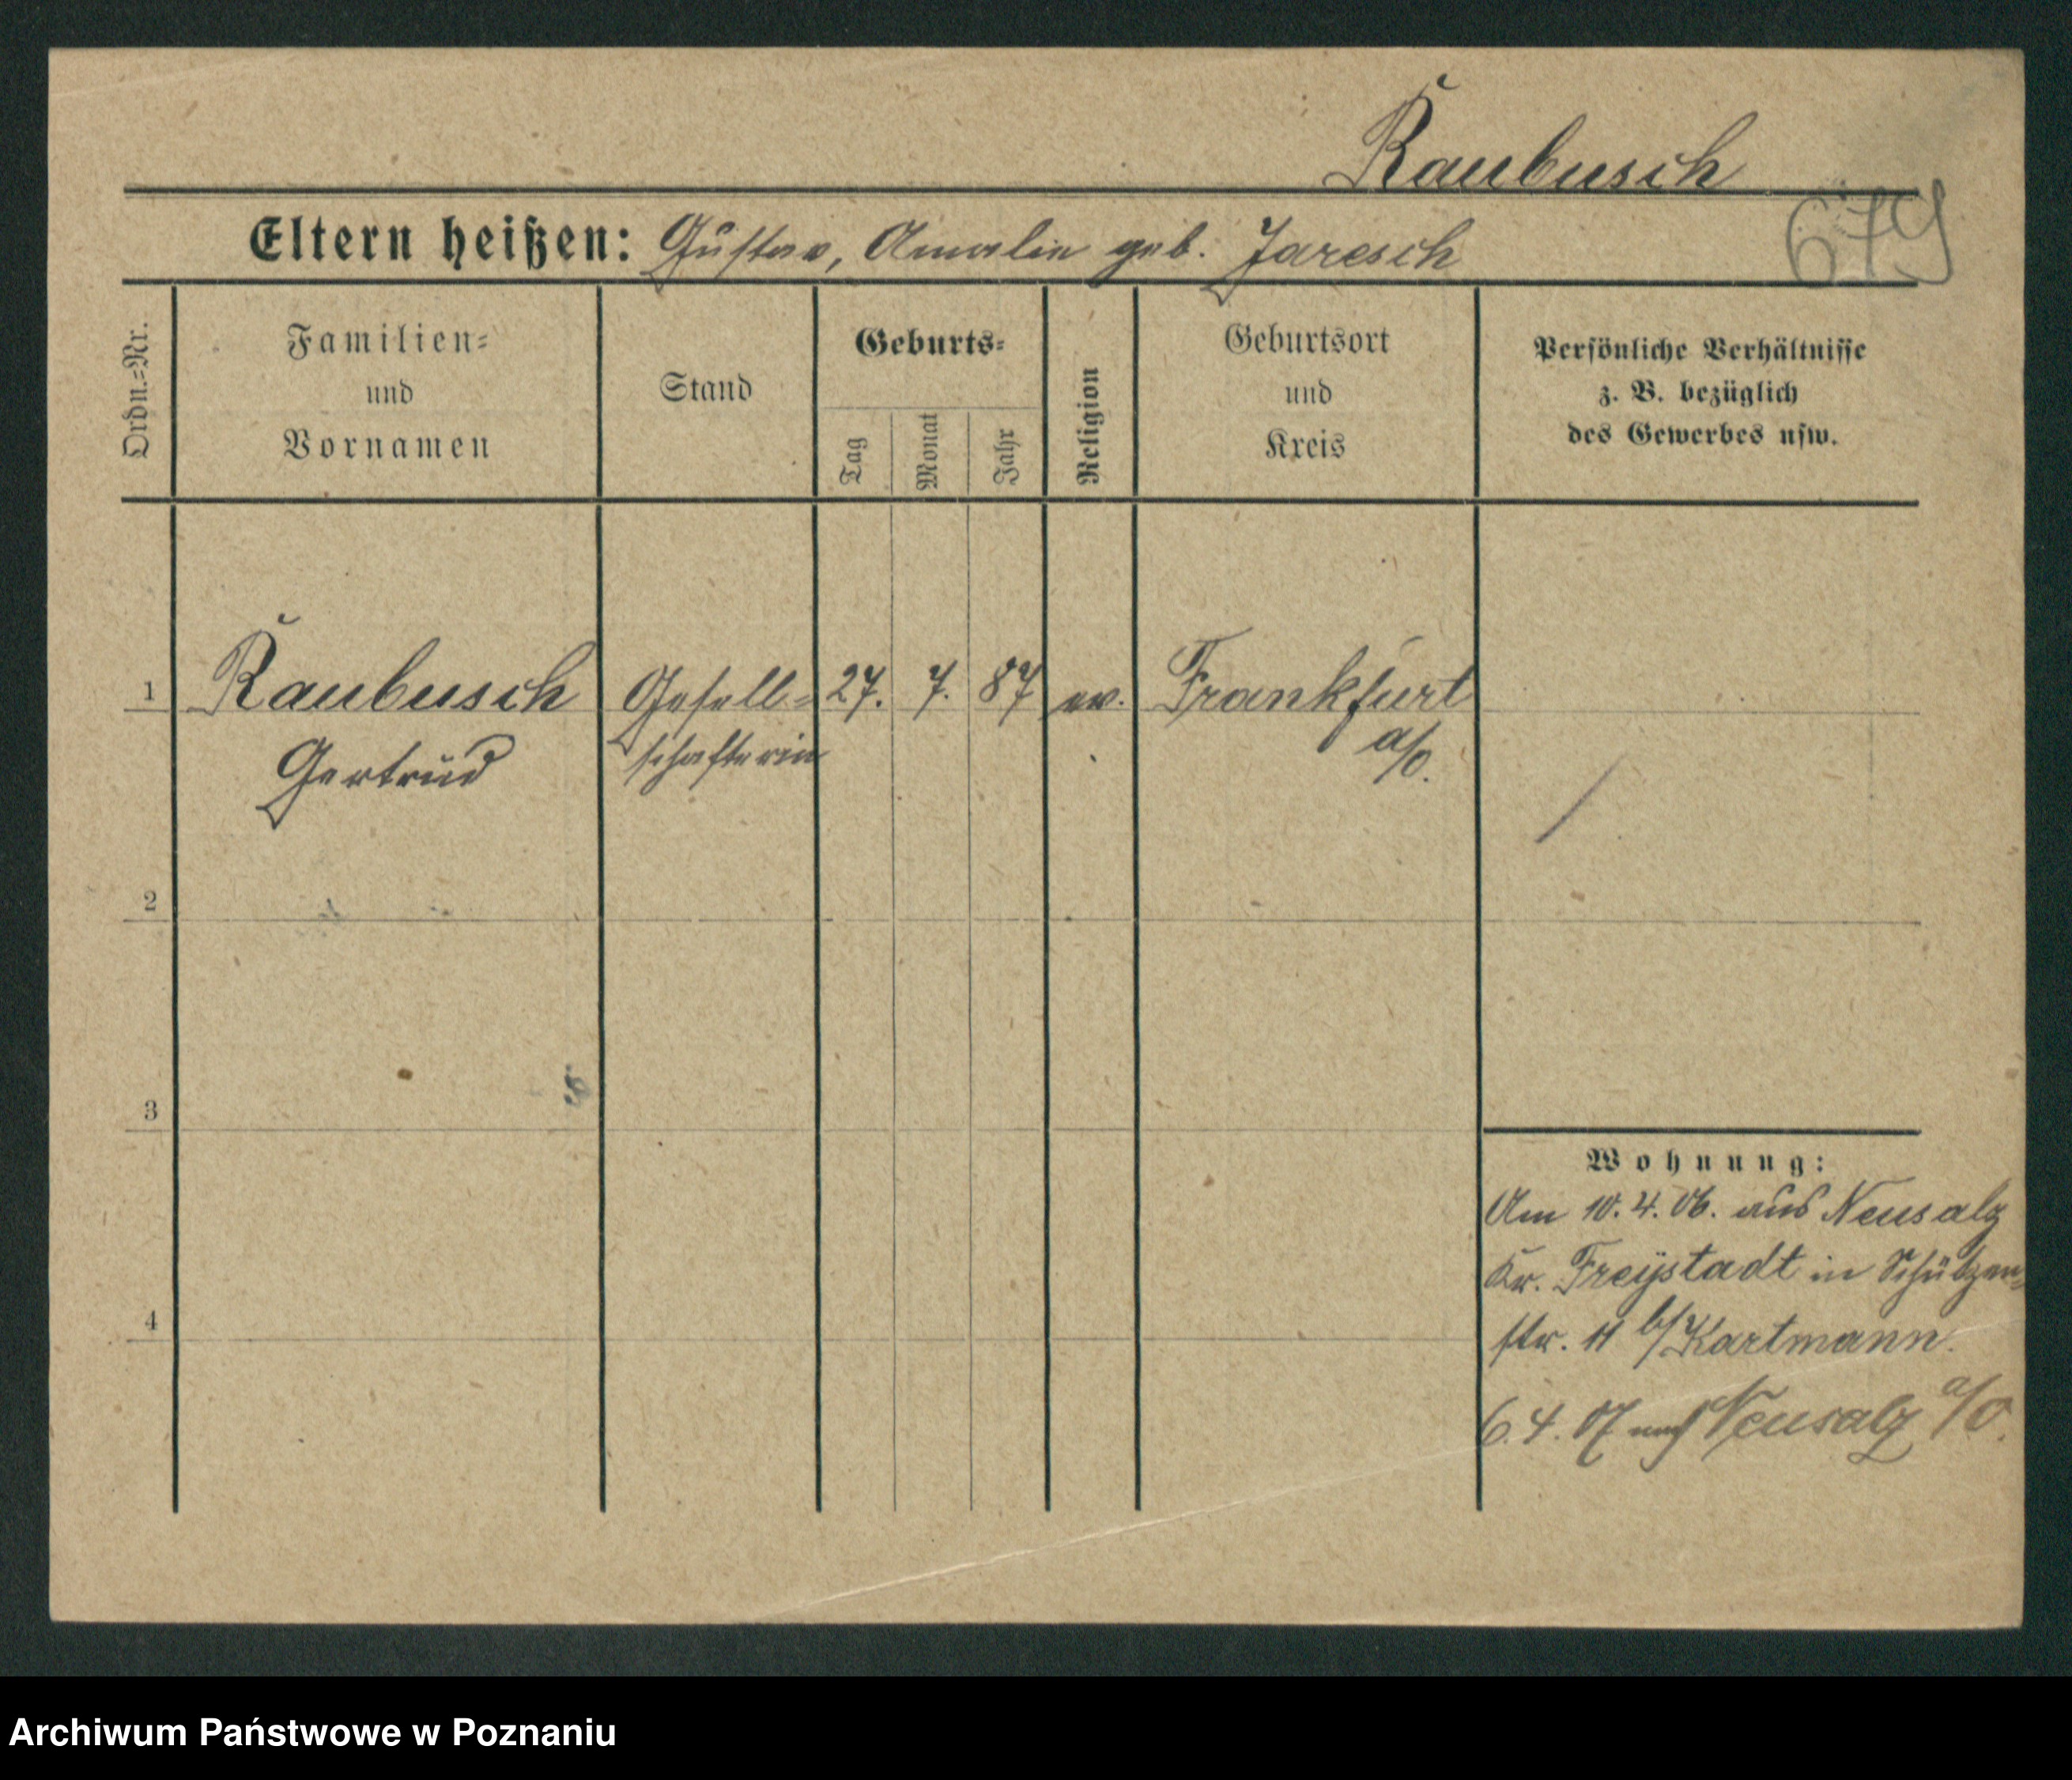 Raubusch
679
Eltern heißen: Gustav, Amalie geb. Jaresch
Ordn.=Nr.
Familien=
und
Vornamen
Stand
Geburts=
Tag
Monat
Jahr
Religion
Geburtsort
und
Kreis
Persönliche Verhältnisse
z. B. bezüglich
des Gewerbes usw.
1 Raubusch Gesell= 27. 7. 87 ev. Frankfurt
Gertrud schafterin a/O.
2
3
4
Wohnung:
Am 10. 4. 06. aus Neusalz
Kr. Freystadt in Schützen=
str. 11 b/ Kartmann.
6. 4. 07 nach Neusalz a/O.
Archiwum Państwowe w Poznaniu